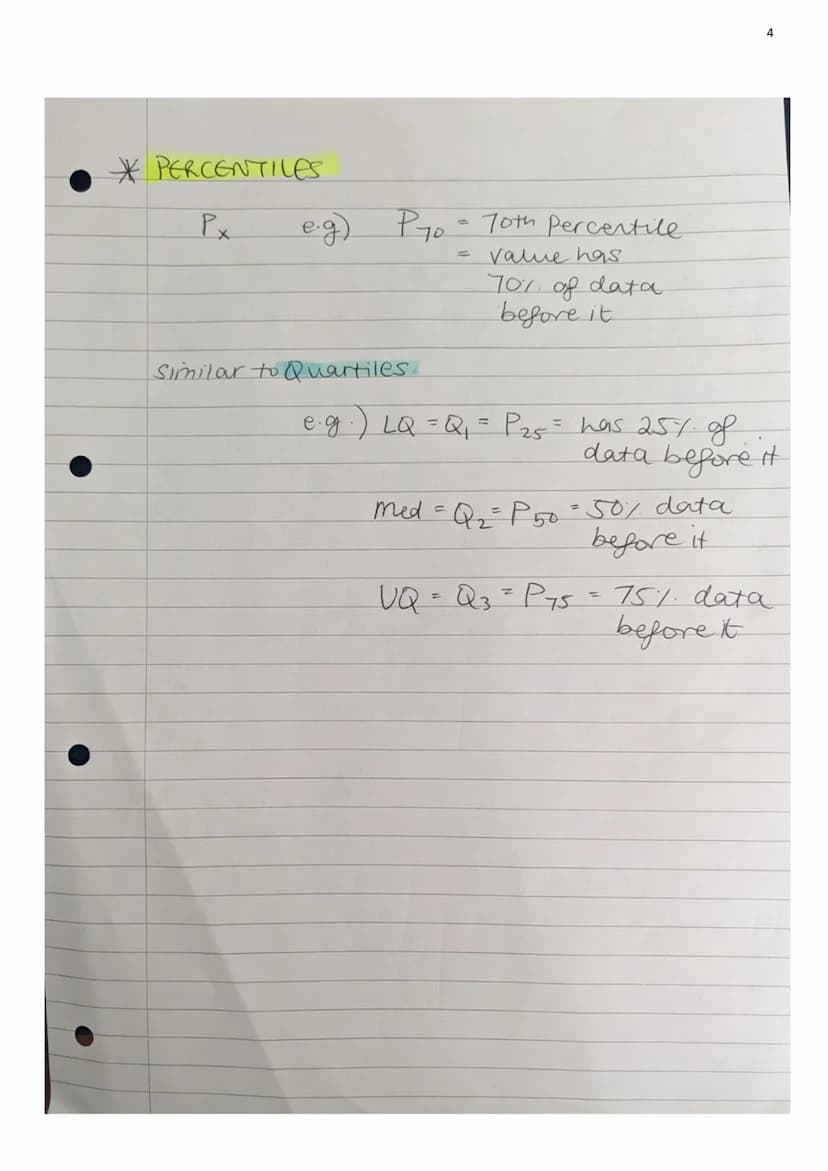 4
* PERCENTILES
Px e.g) P70 = 70th Percentile
= value has
70% of data
before it
Similar to Quartiles.
e.g.) LQ = Q1 = P25 = has 25% of
data before it
Med = Q2 = P50 = 50% data
before it
UQ = Q3 = P75 = 75% data
before it